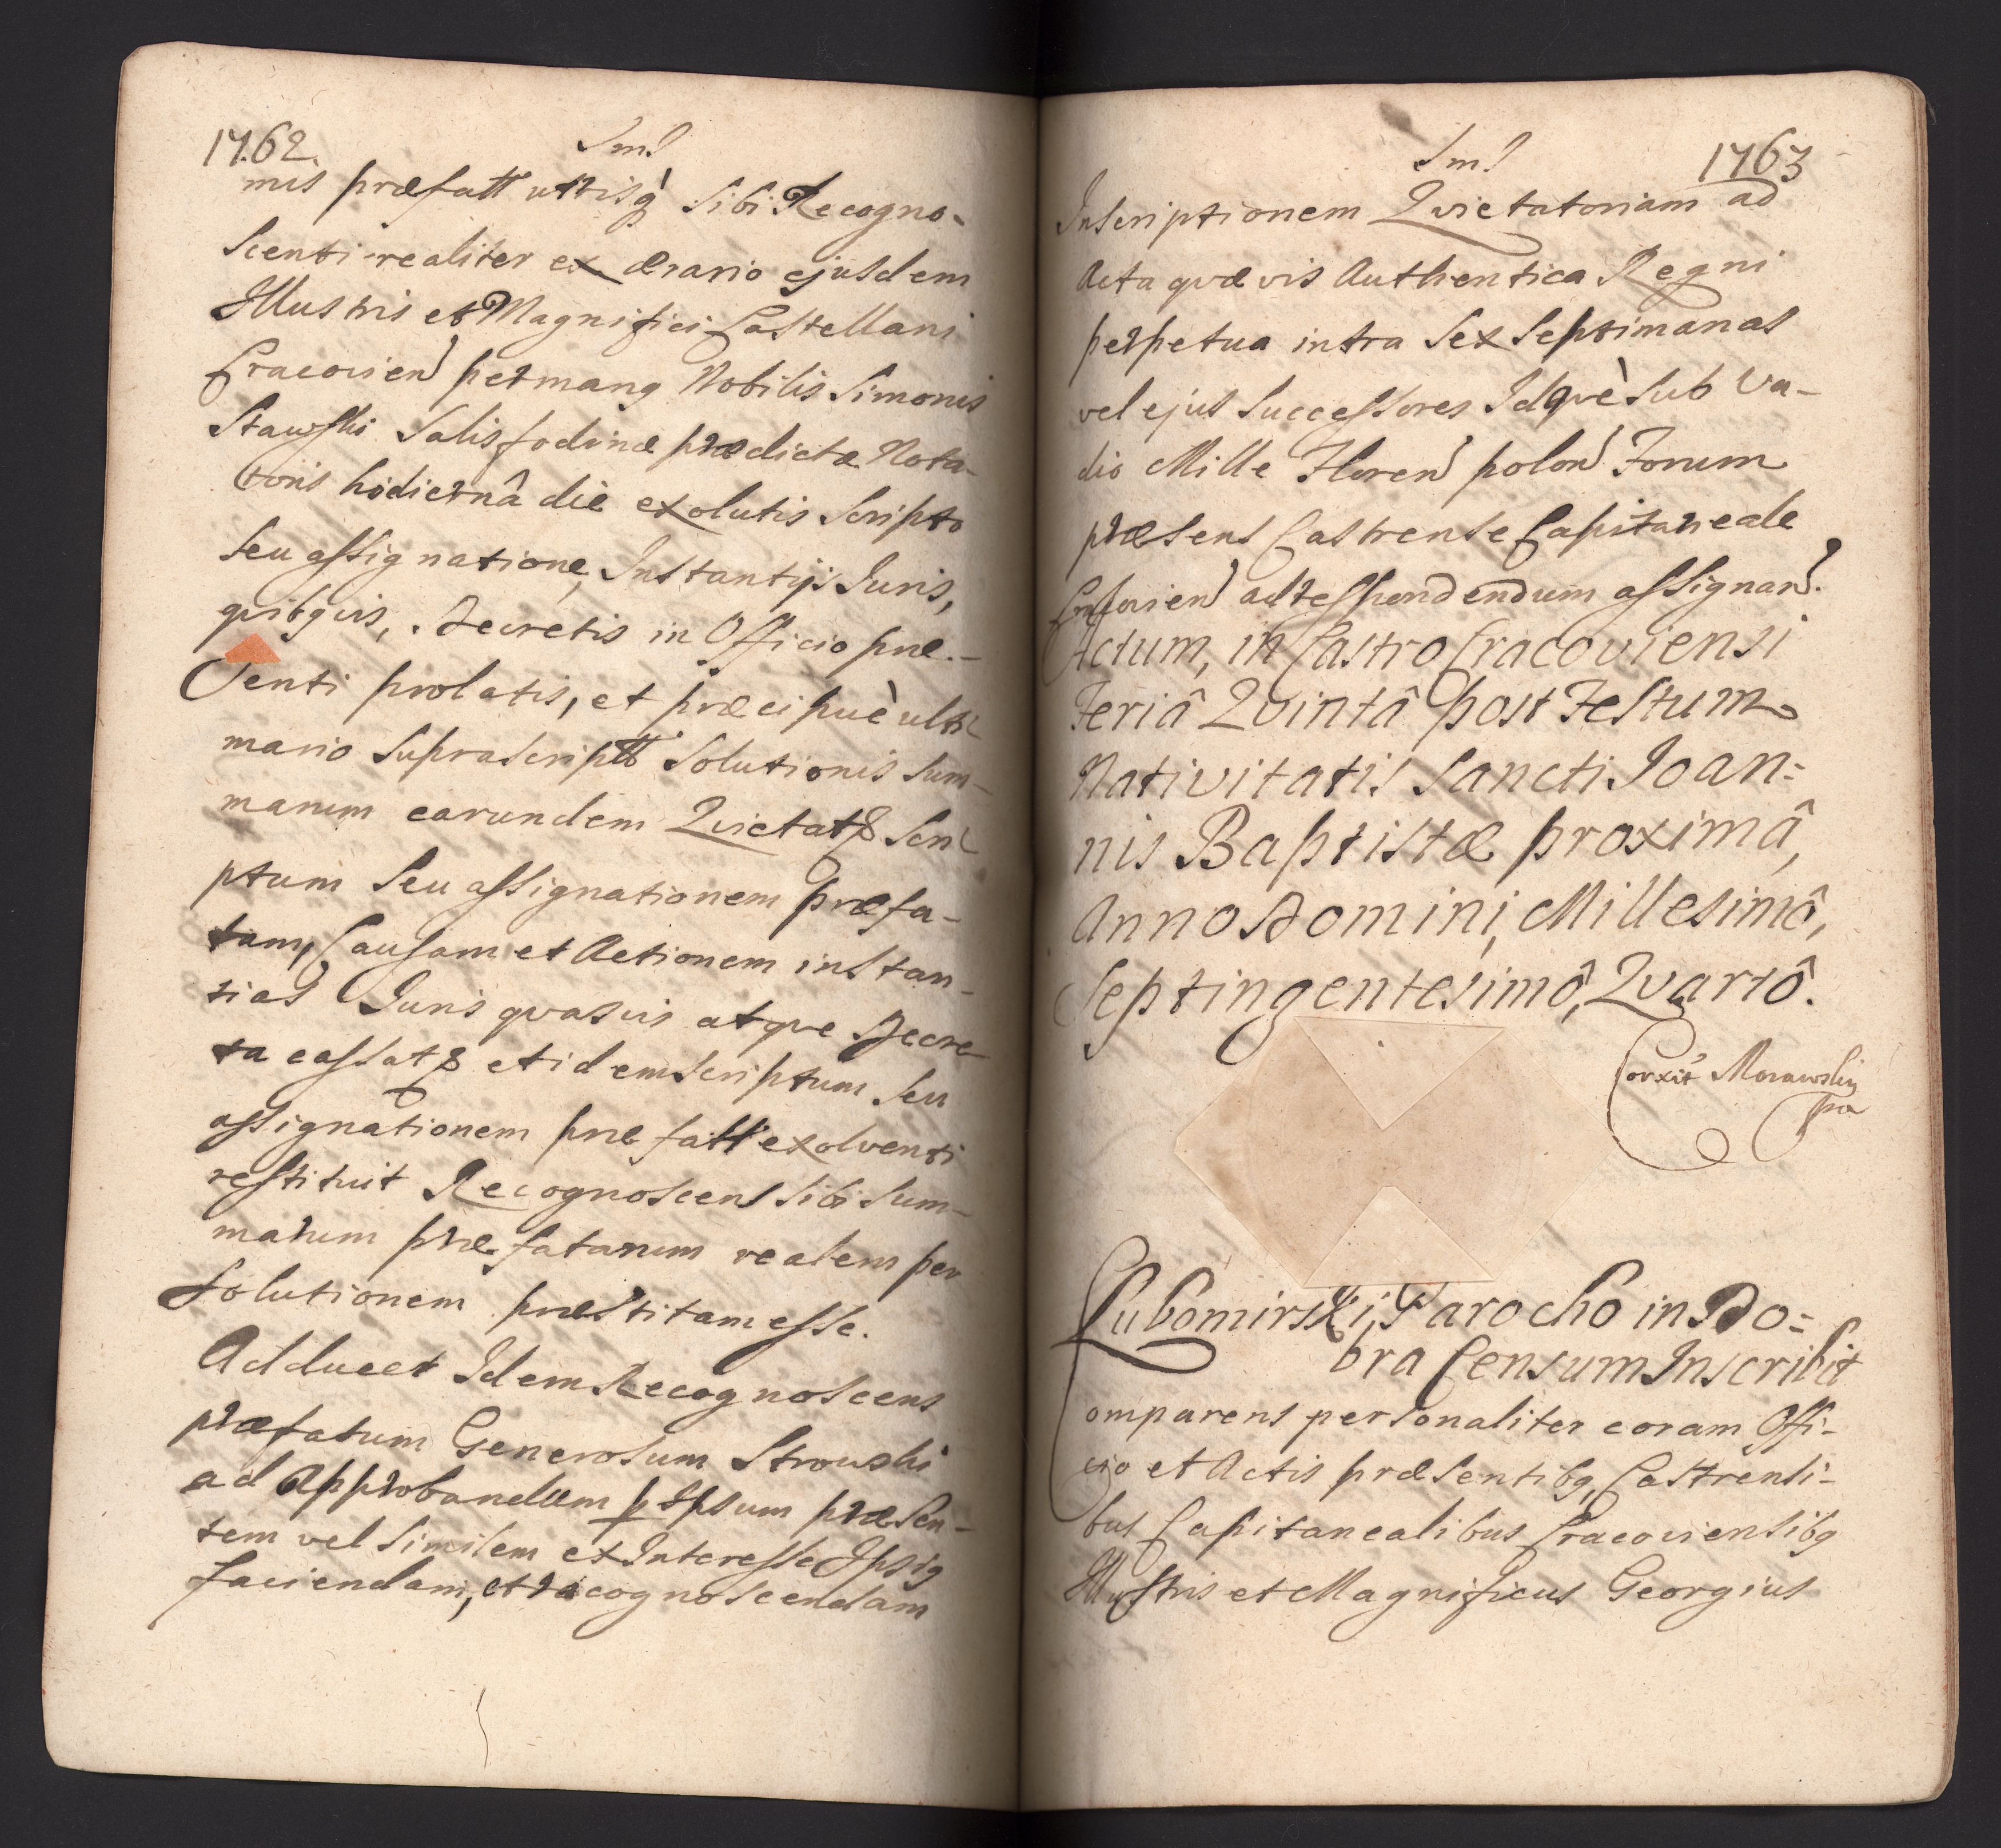 1762.
Sm!
mis præfatt utrisq̀ sibi Recogno-
scenti realiter ex ærario ejusdem
Illustris et Magnifici Castellani
Cracovien per mang Nobilis Simonis
Stawski Salisfodinæ prædictæ Nota-
toris hodiernâ die exolutis scripto
seu assignatione, Instantijs Juris,
quibqvis, Decretis in Officio præ-
senti prolatis, et præcipuè ulti
mario suprascriptt solutionis sum-
marum earundem Qvietat scri
ptum seu assignationem præfa-
tam, Causam et Actionem instan-
tias Juris qvasvis atqve Decre
ta cassat et idem scriptum seu
assignationem præfatt exolventi
restituit Recognoscens sibi sum-
marum præfatarum realem per
solutionem præstitam esse.
Adducet Idem Recognoscens
præfatum Generosum Strowski
ad Approbandam p Ipsum præsen-
tem vel similem et Interesse Ipsig
faciendam, et recognoscendam
1763
Sm!
Inscriptionem Qvietatoriam ad
Acta qvævis Authentica Regni
perpetua intra sex septimanas
vel ejus successores Idqvè sub va-
dio Mille Floren polon Forum
præsens Castrense Capitaneale
adrespondendum assignan.
Actum, in Castro Cracoviensi
Feriâ Qvintâ post Festum
Nativitatis Sancti Joan=
nis Baptistæ proximâ,
Anno Domini, Millesimô,
Septingentesimô, Qvartô.
Corxit Morawski
Lubomirski, Parocho in Do=
bra Censum Inscribit
omparens personaliter coram Offi-
cio et Actis præsentibq, Castrensi-
bus Capitanealibus Cracoviensibq
Illustris et Magnificus Georgius